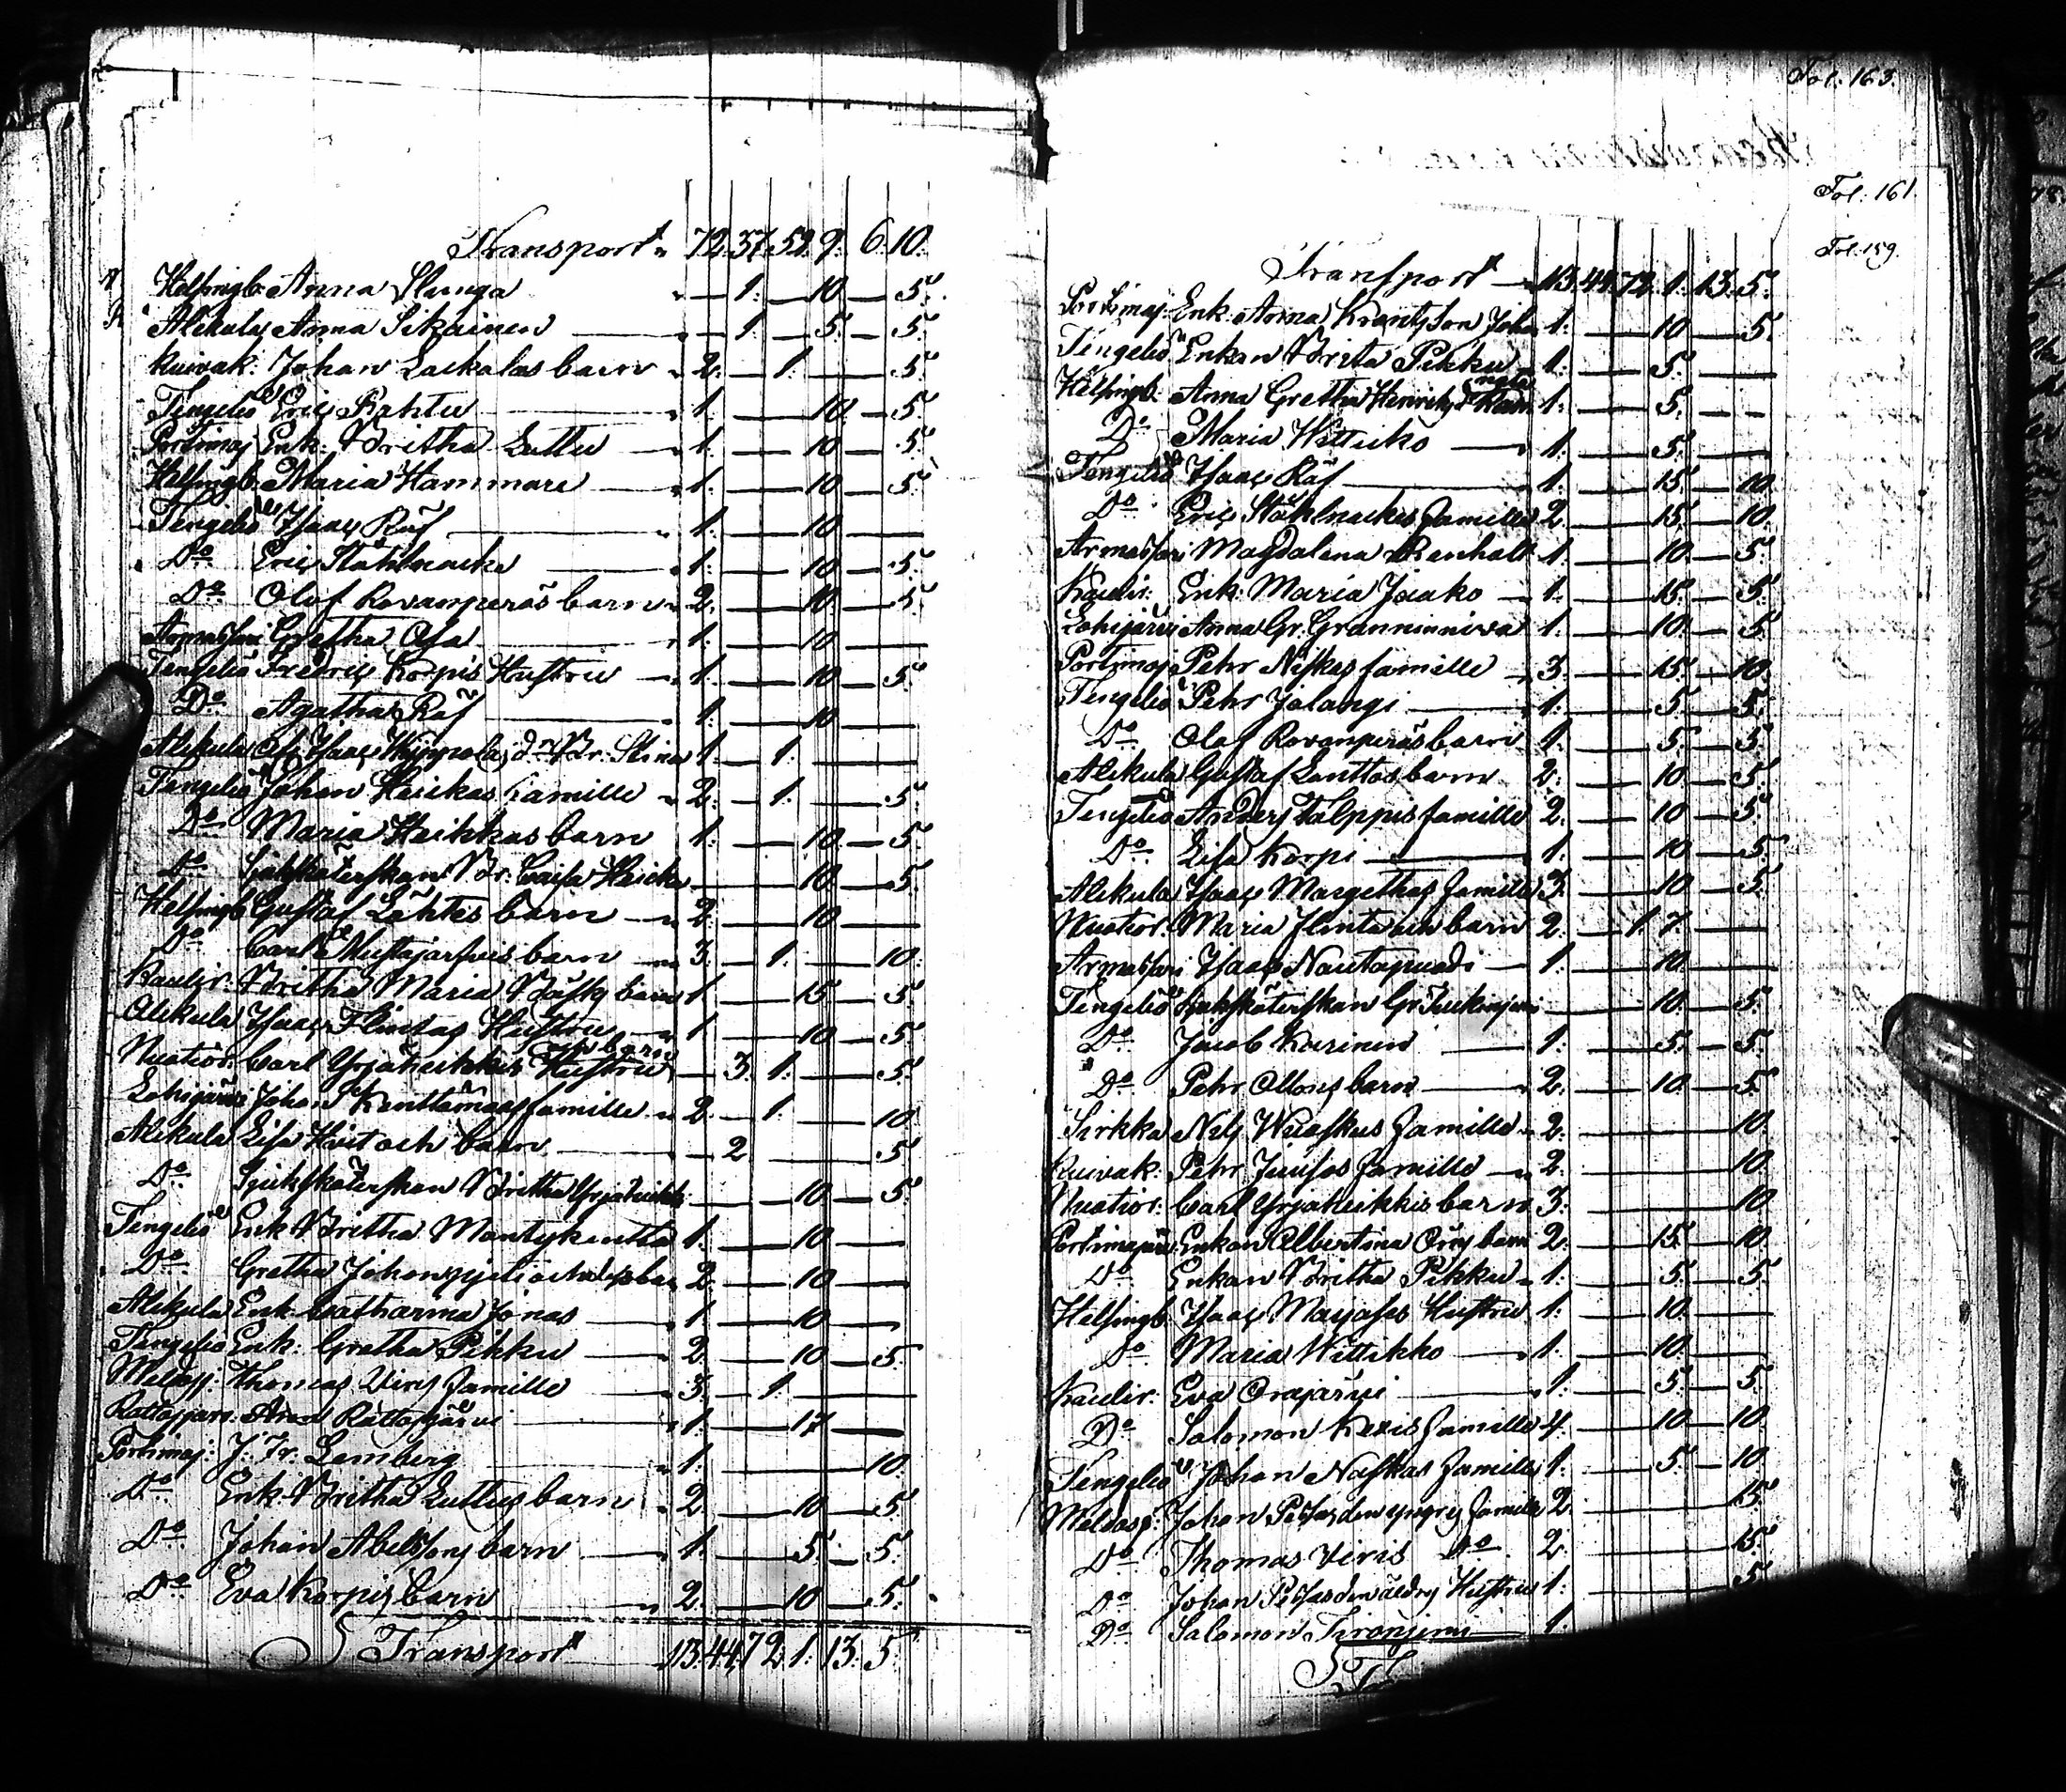 Transport 72. 37. 52. 9. 6. 10.
Helsingb. Anna Slunga — 1. — 10 — 5.
Alekula Anna Sikainen — 1. — 5. — 5.
Kuivak. Johan Lackalas barn 2. — 1. — 5.
Tengeliö Eric 1. — 10. — 5.
Portimoj. Enk. Britha Luttu 1. — 10 — 5.
Helsingb. Maria Hammare 1. — 10 — 5.
Tengeliö Isaac Räf 1. — 10 —
Do Eric Ståhlnacke 1. — 10 — 5.
Do Olof Rovanperäs barn 2. — 10. — 5.
Armassari Gretha 1. — 10 —
Tengeliö Fredric Korpis Hustru 1. — 10 — 5.
Do Agatha Räf 1. — 10 —
Alekula Isaac 1. — 1. —
Tengeliö Johan Heickas familie 2. — 1. — 5.
Do Maria Heikkas barn 1. — 10. — 5.
Do Sjukskäterskan Br. Caisa Heicka — 10 — 5.
Helsingb. Gustaf Lähtes barn 2. — 10 —
Do Carl Mustajarfvis barn 3. — 1. — 10.
Kaulir. Britha Maria barn 1. — 15 — 5.
Alekula Isaac Flintas Hustru 1 — 10 — 5.
och barn
Nuotior. Carl Yrjäheikkis Hustru — 3. 1. — 5.
Lohijärvi Johan Kenttämaas familie 2. — 1. — 10.
Alekula Lisa Hvit och barn — 2 — 5.
Do Sjukskäterskan Britha Yrjäheikki — 10 — 5.
Tengeliö Enk. Britha Mantykentta 1. — 10 —
Do Gretha 2. — 10 —
Alekula Enk. Catharina Jonas 1 — 10 —
Tengeliö Enk. Gretha Pikku 2. — 10 — 5.
Meldosj. Thomas Viris familie 3. — 1. —
Rattosjärv. Rattosjärvi 1. — 17 —
Portimoj. J. Fr. Lemberg 1. — 10.
Do Enk. Britha Luttus barn 2. — 10 — 5.
Do Johan Abelssons barn 1. — 5. — 5.
Do Eva Korpis barn 2. — 10 — 5.
Transport 113. 44. 72. 1. 13. 5
Fol. 163.
Fol. 161.
Fol. 159.
Transport 113. 44. 72. 1. 13. 5.
Portimoj. Enk. Anna Krantzson 1. — 10 — 5.
Tengeliö Enkan Britta Pikku 1. — 5. —
Helsingb. Anna Gretha 1. — 5. —
Do Maria Wittiko 1. — 5. —
Tengeliö Isaac Räf 1. — 15. — 10.
Do Eric Ståhlnackes familie 2. — 15. — 10.
Armassari Magdalena Renhalt 1. — 10. — 5.
Kaulir. Enk. Maria Jaako 1. — 15. — 5.
Lohijärvi Anna Gr. Granninniva 1. — 10. — 5.
Portimoj. Pehr Niskas familie 3. — 15. — 10.
Tengeliö Pehr Jolangi 1. — 5. — 5.
Do Olof Rovanperäs barn 1. — 5. — 5.
Alekula Gustaf Lanttos barn 2. — 10. — 5.
Tengeliö Anders Talppis familie 2. — 10 — 5.
Do Lisa Korpi 1. — 10 — 5.
Alekula Isaac Margethas familie 3. — 10 — 5.
Nuotior. Maria Flinta och barn 2. — 1. 7. —
Armassari Isaac Nautapuodi 1. — 10. —
Tengeliö Sjukskäterskan Gr. — 10. — 5.
Do Jacob Kurinen 1. — 5. — 5.
Do Pehr Ollons barn 2. — 10 — 5.
Sirkka Nils Wuoskus familie 2. — 10.
Kuivak. Pehr Juusos familie 2. — 10.
Nuotior. Carl Yrjäheikkis barn 3. — 10.
Portimojärvi Enkan Albertina barn 2. — 15. — 10.
Do Enkan Britha Pikku 1. — 5. — 5.
Helsingb. Isaac Marjases Hustru 1. — 10. —
Do Maria Wittikko 1. — 10. —
Kaulir. Eva Orajärvi 1. — 5. — 5.
Do Salomon Kexis familie 4. — 10 — 10.
Tengeliö Johan Naskas familie 1. — 5. — 10
Meldosj. Johan Petjas den yngres familie 2. — 15.
Do Thomas Viris Do 2. — 15.
Do Johan Petjas den äldres Hustru 1. — 5.
Do Salomon 1.